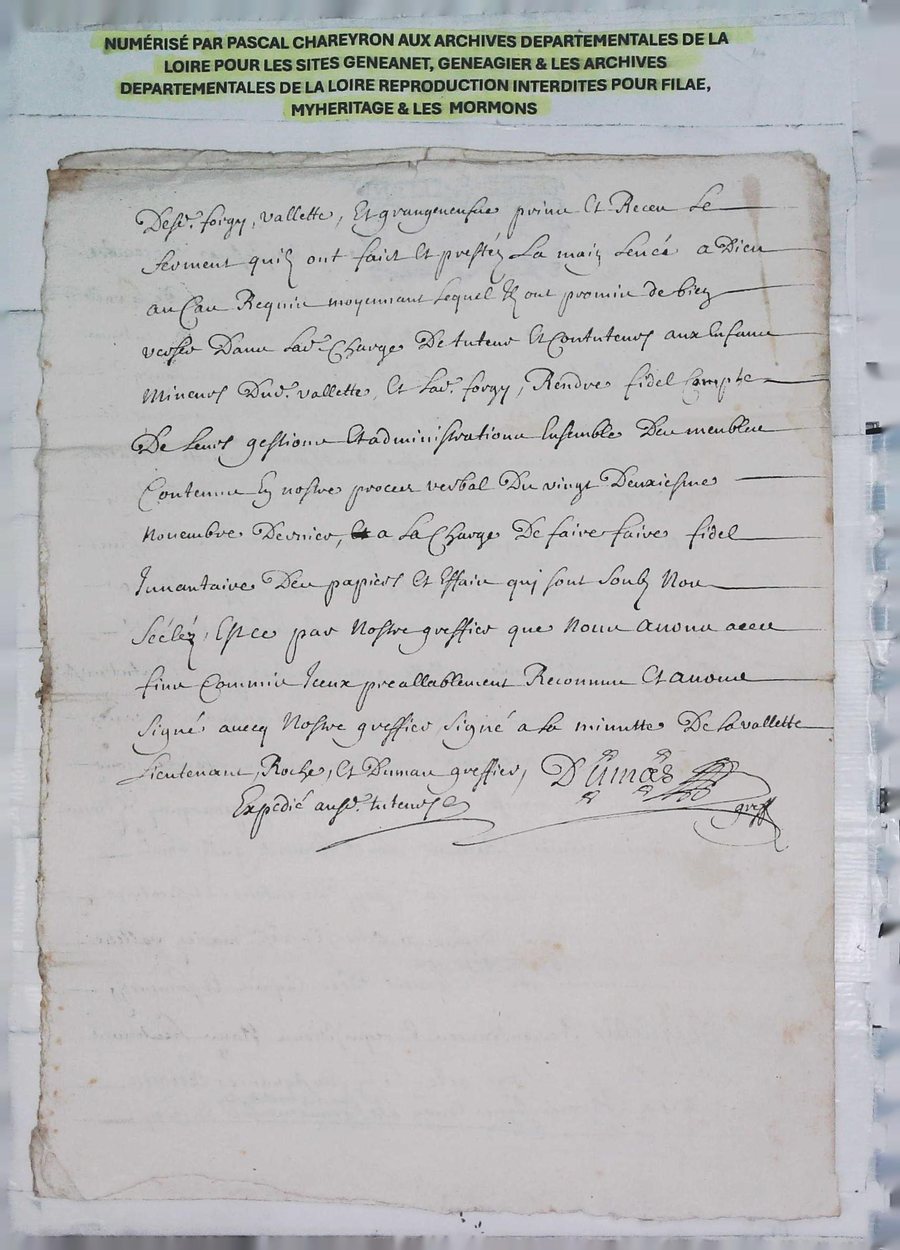 NUMÉRISÉ PAR PASCAL CHAREYRON AUX ARCHIVES DEPARTEMENTALES DE LA
LOIRE POUR LES SITES GENEANET, GENEAGIER & LES ARCHIVES
DEPARTEMENTALES DE LA LOIRE REPRODUCTION INTERDITES POUR FILAE,
MYHERITAGE & LES MORMONS
Desd. forgy, vallette, Et grangeneufve prins Et Receu Le
serment quilz ont faict Et prestéz La main Levéé a Dieu
au Cas Requis moyennant lequel Ilz ont promis de bien
verser Dans lad. Charge De tuteur Et Contuteurs aux Enfans
Mineurs Dud. vallette, Et lad. forgy, Rendre fidel Compte
De leurs gestions Et administrations Ensemble Des meubles
Contenus En nostre proces verbal Du vingt Deuxiesme
Novembre Dernier, a la Charge De faire faire fidel
Inventaire Des papiers Et Effais qui sont Soubz Nos
Scéléz, Est ce par Nostre greffier que Nous avons a ces
fins Commis Iceux preallablement Reconnus Et avons
Signé avecq Nostre greffier Signé a la minutte De la vallette
Lieutenant, Roche, Et Dumas greffier, Dumas
greff
Expédié ausd. tuteurs